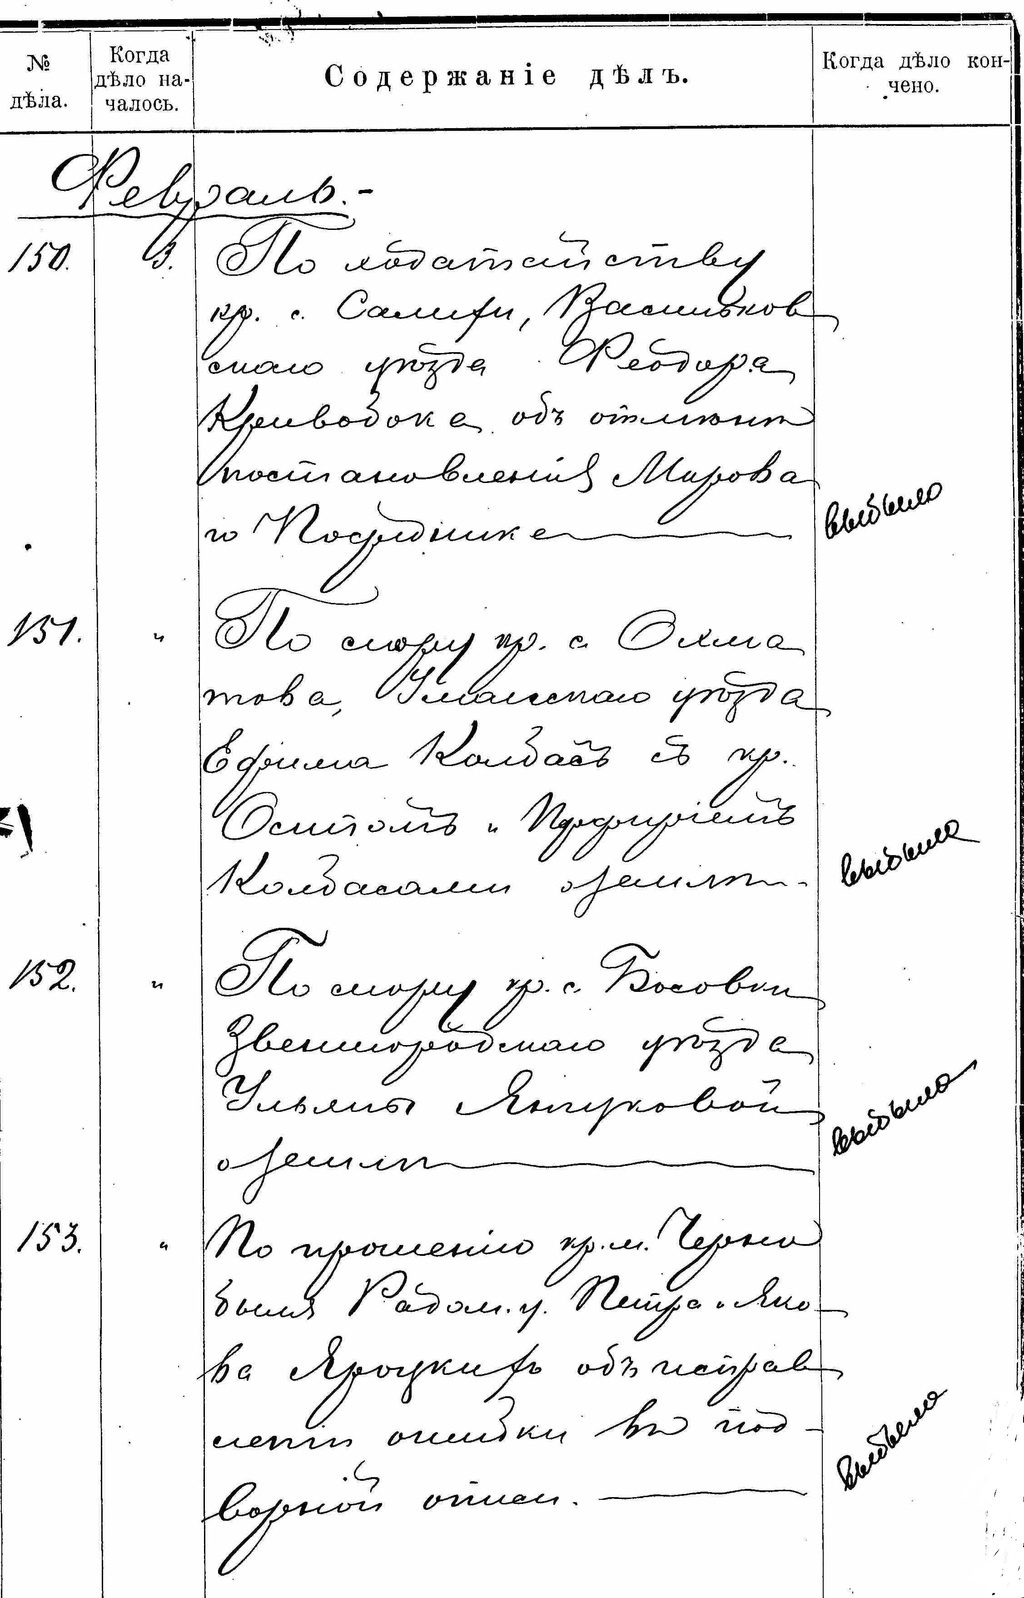 № дѣла.
Когда дѣло на-
чалось.
Содержаніе дѣлъ.
Когда дѣло кон-
чено.
Февраль.-
150. 3. По ходатайству
кр. с. Салихи, Васильков
скаго уѣзда Феодора
Кривобока объ отмѣнѣ
постановленія Мирова
го Посредника
выбыло
151. " По спору кр. с. Охма
това, Уманскаго уѣзда
Ефима Колбасъ съ кр.
Осипомъ и Порфиріемъ
Колбасами о землѣ.
выбыла
152. " По спору кр. с. Босовки
Звенигородскаго уѣзда
Ульяны Янчуковой
о землѣ
выбыло
153. " По прошенію кр. м. Черно
быля Радом. у. Петра и Яко-
ва Яроцкихъ объ исправ
леніи ошибки въ под-
ворной описи.
выбыла